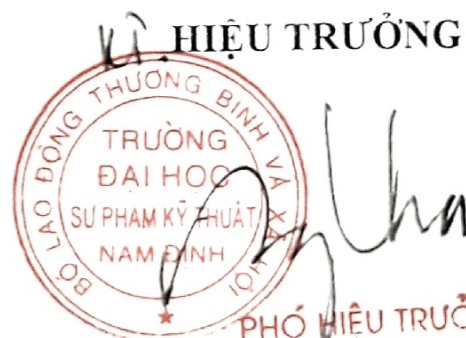 KT.HIỆU TRƯỞNG
BỘ LAO ĐỘNG THƯƠNG BINH VÀ XÃ HỘI
TRƯỜNG
ĐẠI HỌC
SƯ PHẠM KỸ THUẬT
NAM ĐỊNH
PHÓ HIỆU TRƯỞ